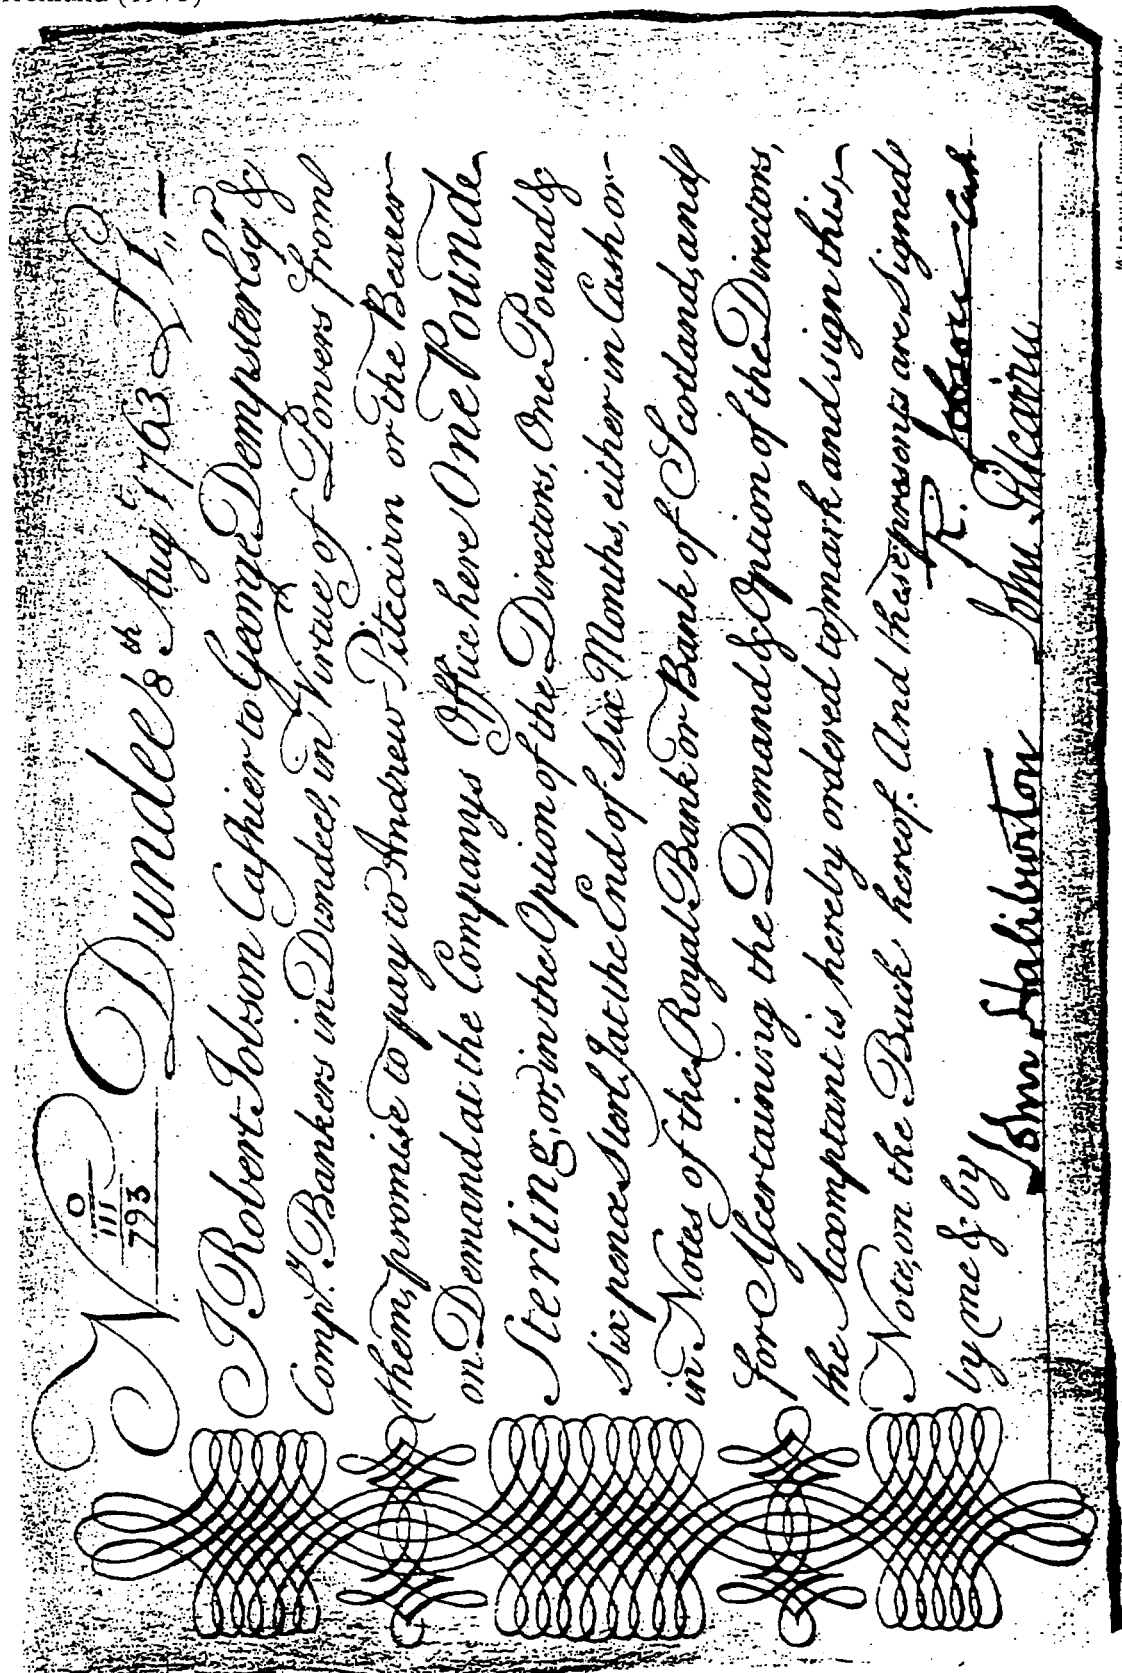 No 111/793 Dundee 8th Augt 1763 £1,,—
I Robert Jobson Cashier to George Dempster Esqr &
Compy. Bankers in Dundee, in Virtue of Powers from
them, promise to pay to Andrew Pitcairn or the Bearer
on Demand at the Companys Office here One Pound
Sterling, or, in the Option of the Directors, One Pound &
Six pence Sterl. at the End of Six Months, either in Cash or
in Notes of the Royal Bank or Bank of Scotland, and
for Ascertaining the Demand & Option of the Directors,
the Accomptant is hereby ordered to mark and sign this
Note, on the Back hereof. And these presents are Signed
by me & by
R. Jobson Cash
John Haliburton John Pitcairn